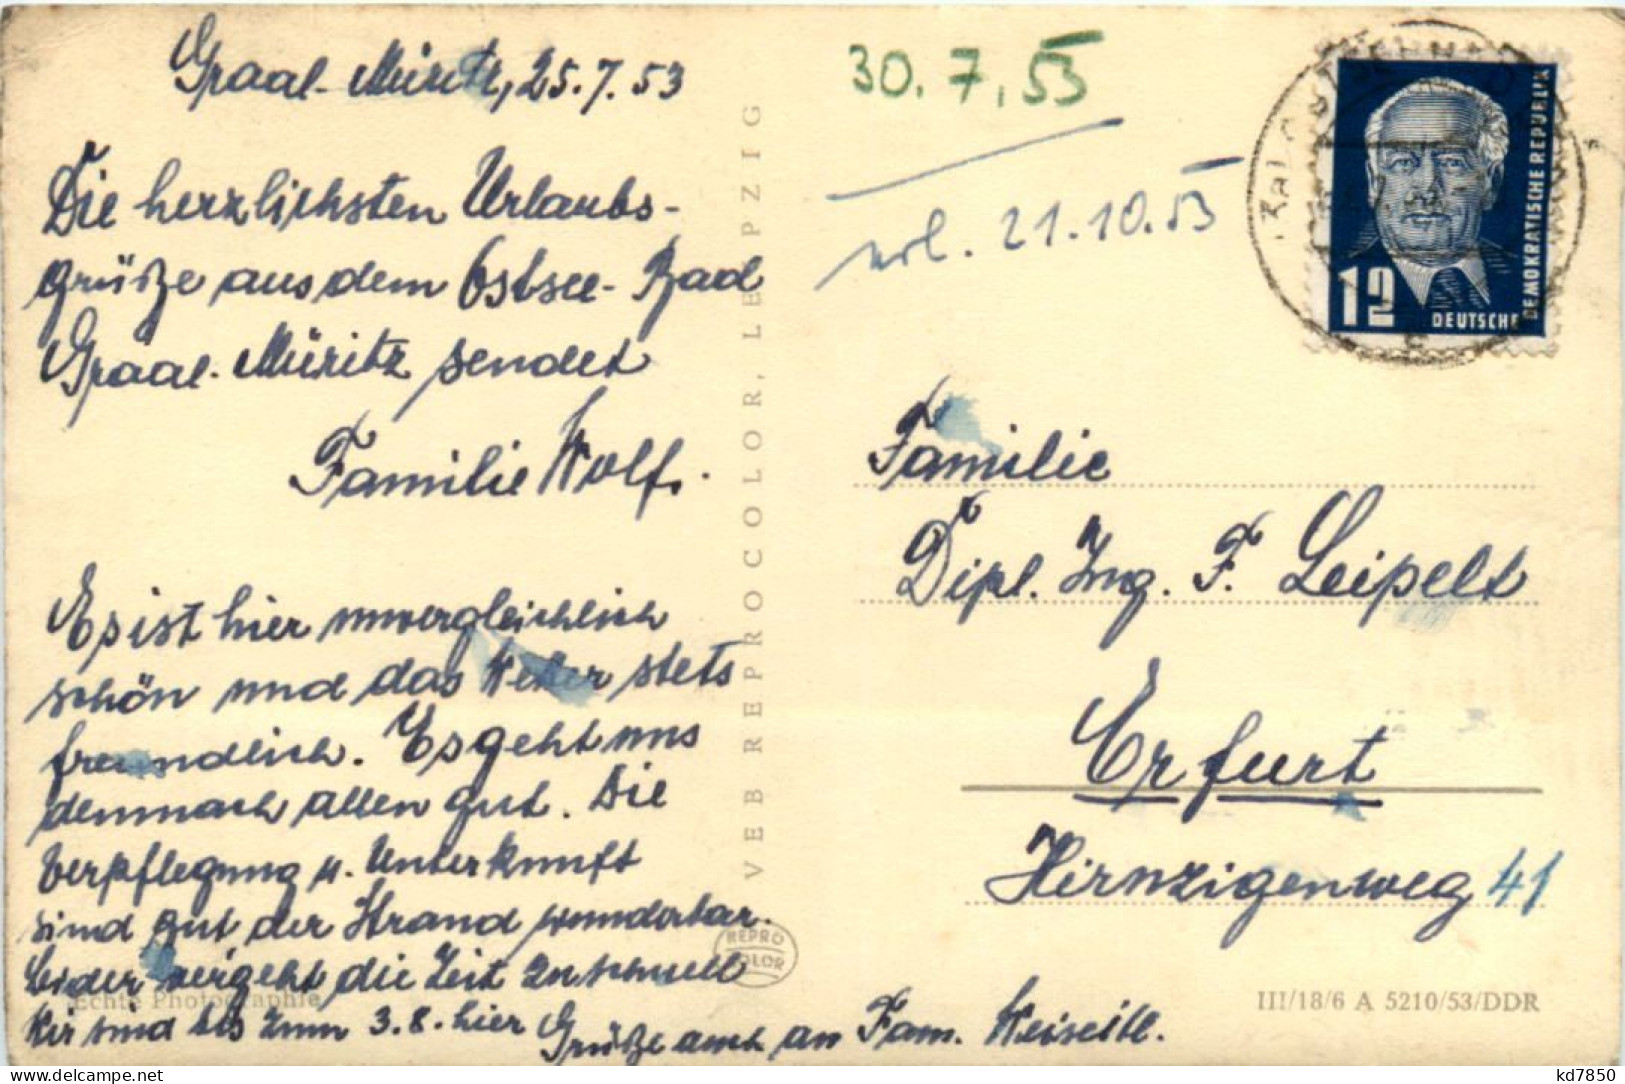 Graal-Müritz, 25.7.53
Die herzlichsten Urlaubs-
grüße aus dem Ostsee-Bad
Graal-Müritz sendet
Familie Wolf.
Es ist hier unvergleichlich
schön und das Wetter stets
freundlich. Es geht uns
demnach allen gut. Die
Verpflegung u. Unterkunft
sind gut der Strand wunderbar.
Leider vergeht die Zeit zu schnell
Wir sind bis zum 3.8. hier
Grüße auch an Fam.
Echte Photographie
VEB REPROCOLOR, LEIPZIG
REPRO
COLOR
30.7.53
erl. 21.10.53
12
DEUTSCHE
DEMOKRATISCHE REPUBLIK
Familie
Dipl. Ing. F. Leipelt
Erfurt
Hirnzigenweg 41
III/18/6 A 5210/53/DDR
kd7850